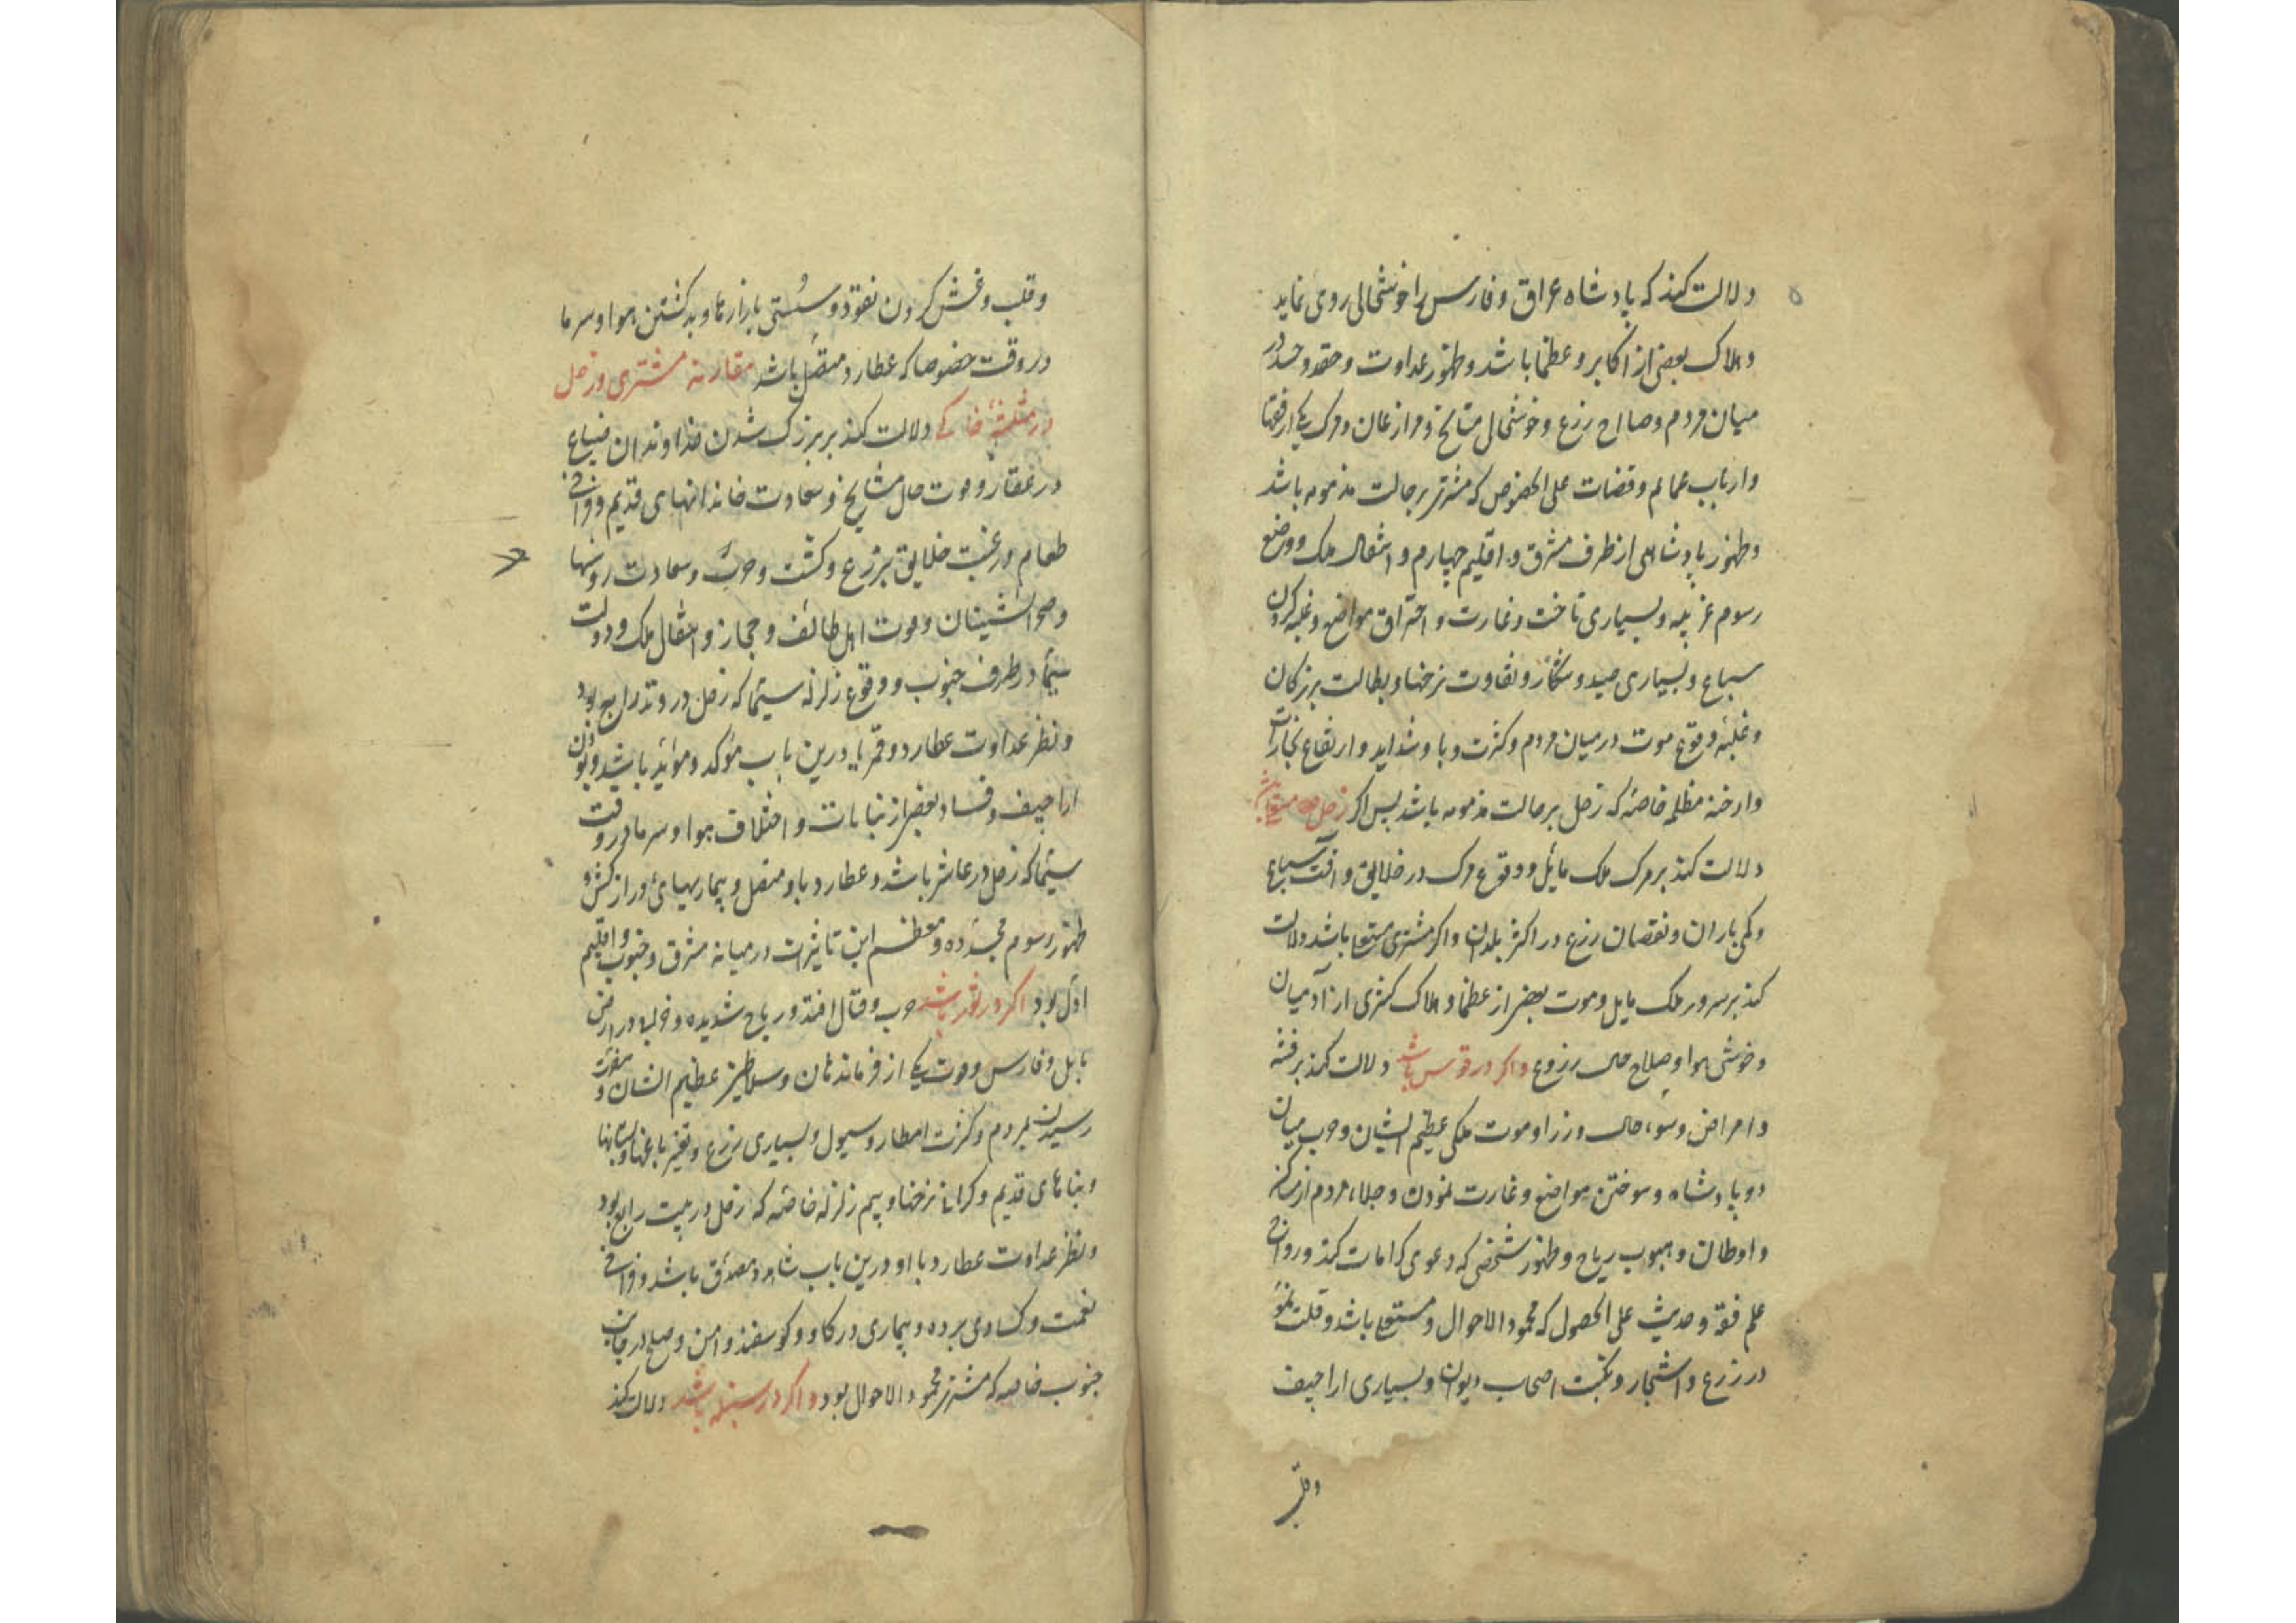 دلالت کند که پادشاه عراق و فارس را خوشحالی روی نماید
و هلاک بعضی از اکابر و عظما باشد و ظهور عداوت و حقد و حسد در
میان مردم و صلاح زرع و خوشحالی مشایخ و مزارعان و مرک یکی از فقها
و ارباب عمایم و قضات علی الخصوص که مشتری بر حالت مذمومه باشد
و ظهور پادشاهی از طرف مشرق و اقلیم چهارم و انتقال ملک و وضع
رسوم غریبه و بسیاری تاخت و غارت و احتراق مواضع و غلبه کردن
سباع و بسیاری صید و شکار و تفاوت نرخها و بطالت برزکان
و غلبه وقوع موت در میان مردم و کثرت وبا و شداید و ارتفاع بخارات
و ادخنه مظلمه خاصه که زحل بر حالت مذمومه باشد پس اکر زحل مستعلی باشد
دلالت کند بر مرک ملک بابل و وقوع مرک در خلایق و آفت سباع
و کمی باران و نقصان زرع در اکثر بلدان و اکر مشتری مستعلی باشد دلالت
کند بر سرور ملک بابل و موت بعضی از عظما و هلاک کثیری از آدمیان
و خوشی هوا و صلاح حال زروع و اکر در قوس باشد دلالت کند بر فتنه
و امراض و سوء حال وزرا و موت ملکی عظیم الشان و حرب میان
دو پادشاه و سوختن مواضع و غارت نمودن و جلاء مردم از مساکن
و اوطان و هبوب ریاح و ظهور شخصی که دعوی کرامات کند و رواج
علم فقه و حدیث علی الحصول که محمود الاحوال و مستعلی باشد و قلت نمو
در زرع و اشجار و نکبت اصحاب دیوان و بسیاری اراجیف
و قلب
و قلب و غش کردن نقود و سستی بازارها و بد کشتن هوا و سرما
در وقت خصوصا که عطارد متصل باشد مقارنه مشتری و زحل
در مثلثهٔ خاکی دلالت کند بر بزرک شدن خداوندان ضیاع
و عقار و قوت حال مشایخ و سعادت خاندانهای قدیم و فراخی
طعام و رغبت خلایق بزرع و کشت و حرث و سعادت روستاها
و صحرانشینان و موت اهل طائف و حجاز و انتقال ملک و دولت
سیما در طرف جنوب و وقوع زلزله سیما که زحل در وتد رابع بود
و نظر عداوت عطارد و قمر با درین باب مؤکد و مؤید باشد و بودن
اراجیف و فساد بعضی از نباتات و اختلاف هوا و سرما در وقت
سیما که زحل در عاشر باشد و عطارد باو متصل و بیماریهای دراز کش و
ظهور رسوم مجدده و معظم این تاثیرات در میانه مشرق و جنوب و اقلیم
اول بود اکر در ثور باشد حرب و قتال افتد و ریاح شدیده و در ارض
بابل و فارس و موت یکی از فرماندهان و سلاطین عظیم الشان و مضرت
رسیدن بمردم و کثرت امطار و سیول و بسیاری زرع و تغیر باغها و بستانها
و بناهای قدیم و کرانی نرخها و بیم زلزله خاصه که زحل در بیت رابع بود
و نظر عداوت عطارد با او درین باب شاهد و مصدق باشد و فراخی
نعمت و کسادی برده و بیماری در کاو و کوسفند و امن و صلح در جانب
جنوب خاصه که مشتری محمود الاحوال بود و اکر در سنبله باشد دلالت کند